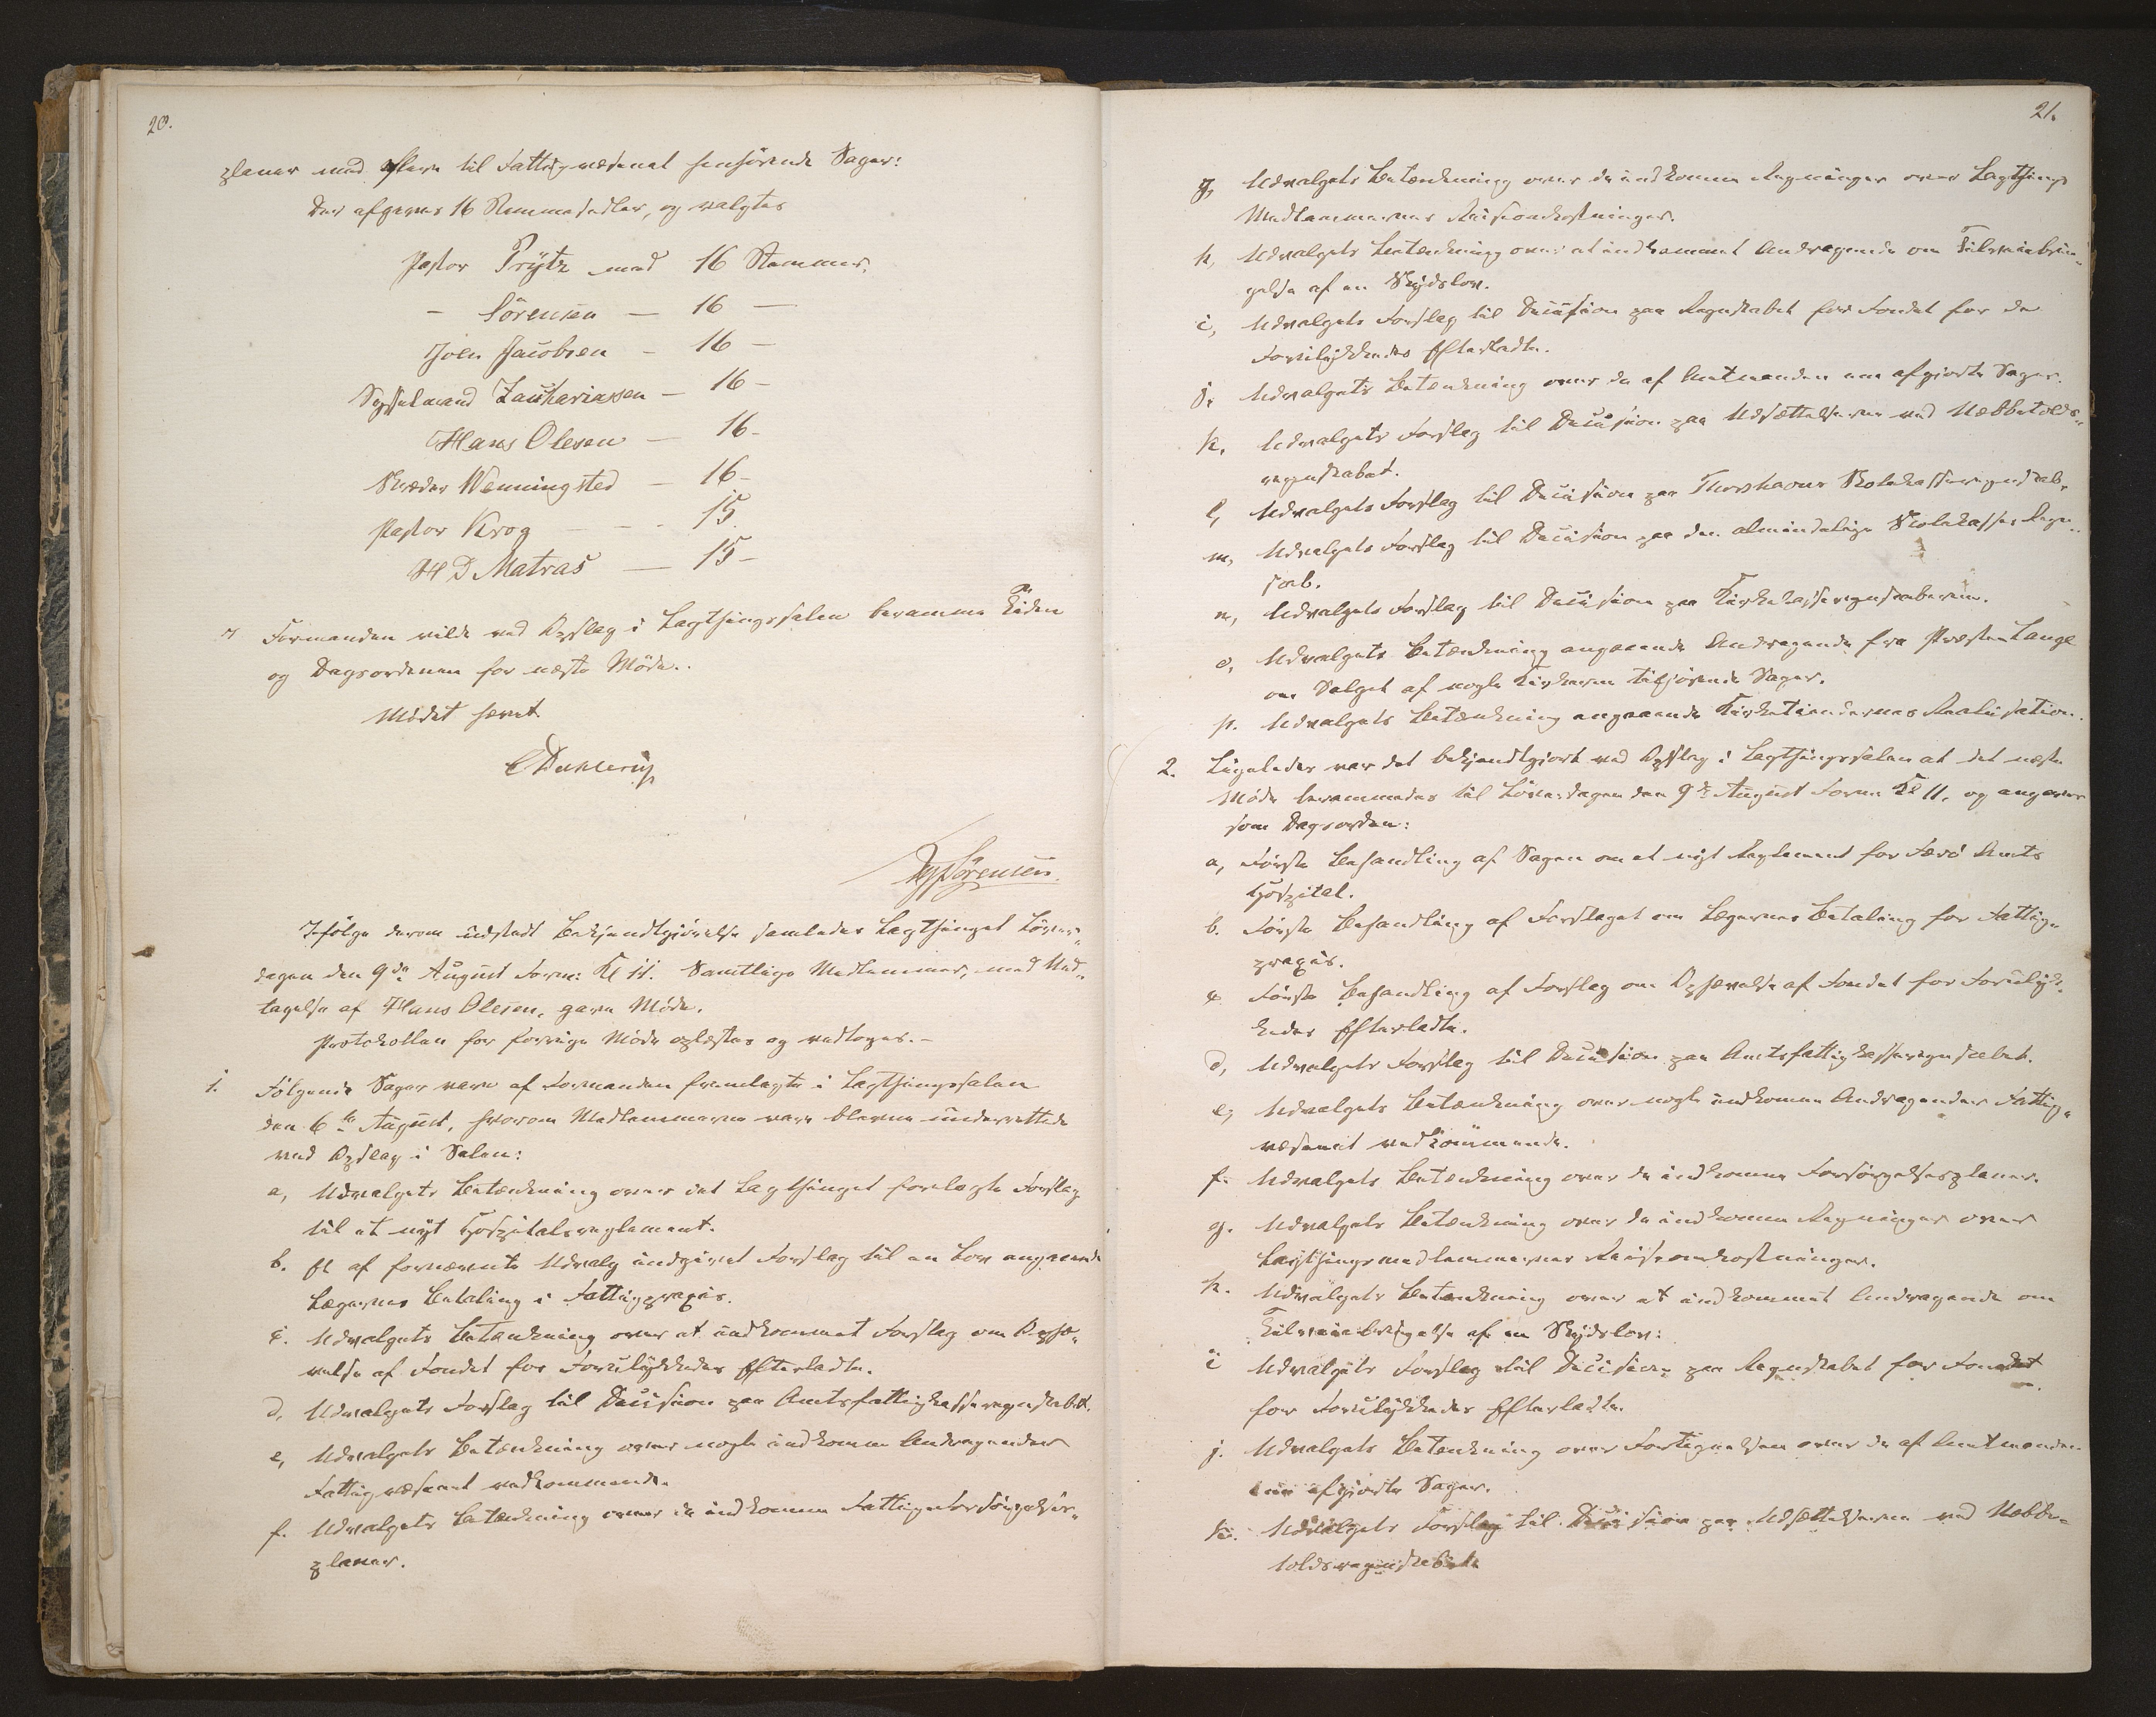 20.
planer med flere til Fattigvæsenet henhörende Sager:
Der afgaves 16 Stemmesedler, og valgtes
Pastor Prytz med 16 Stemmer.
- Sörensen — 16 —
Joen Jacobsen - 16 -
Sysselmand Zachariasen — 16 -
Hans Olesen — 16-
Skræder Wenningsted — 16-
Pastor Krog - - - 15.
H D Matras — 15-
Formanden vilde ved Opslag i Lagthingssalen beramme Tiden
og Dagsordenen for næste Möde.
Mödet hævet
CDahlerup
Sörensen.
Ifölge derom udstedt Bekjendtgjörelse samledes Lagthinget Löver„
dagen den 9de August Form: Kl 11. Samtlige Medlemmer, med Und„
tagelse af Hans Olesen, gave Möde.
Protokollen for forrige Möde oplæstes og vedtoges.-
1. Fölgende Sager vare af Formanden fremlagte i Lagthingssalen
den 6te August, hvorom Medlemmerne vare blevne underrettede
ved Opslag i Salen:
a, Udvalgets Betænkning over det Lagthinget forelagte Forslag
til et nyt Hospitalsreglement.
b. Et af fornævnte Udvalg indgivet Forslag til en Lov angaaende
Lægernes Betaling i Fattigpraxis.
c. Udvalgets Betænkning over et indkommet Forslag om Ophæ„
velse af Fondet for Forulykkedes Efterladte.
d, Udvalgets Forslag til Decision paa Amtsfattigkasseregnskabet.
e, Udvalgets Betænkning over nogle indkomne Andragender
Fattigvæsenet vedkommende.
f. Udvalgets Betænkning over de indkomne Fattigeforsörgelses„
planer.
21.
g, Udvalgets Betænkning over de indkomne Regninger over Lagthings
Medlemmernes Reiseomkostninger.
h, Udvalgets Betænkning over et indkommet Andragende om Tilveiebrin„
gelse af en Skydslov.
i, Udvalgets Forslag til Decision paa Regnskabet for Fondet for de
Forulykkedes Efterladte.
j. Udvalgets Betænkning over de af Amtmanden ene afgjorte Sager.
k. Udvalgets Forslag til Decision paa Udsættelserne ved Næbbetolds„
regnskabet.
l, Udvalgets Forslag til Decision paa Thorshavns Skolekasseregnskab.
m, Udvalgets Forslag til Decision paa den almindelige Skolekasses Regn„
skab.
n, Udvalgets Forslag til Decision paa Kirkekasseregnskaberne.
o, Udvalgets Betænkning angaaende Andragende fra Præsten Lange
om Salget af nogle Kirkerne tilhörende Sager.
p. Udvalgets Betænkning angaaende Kirketiendernes Realisation.
2. Ligeledes var det bekjendtgjort ved Opslag i Lagthingssalen at det næste
Möde berammedes til Löverdagen den 9de August Form. Kl 11, og angaves
som Dagsorden:
a, Förste Behandling af Sagen om et nyt Reglement for Færö Amts
Hospital.
b. Förste Behandling af Forslaget om Lægernes Betaling for Fattig„
praxis.
c Förste Behandling af Forslag om Ophævelse af Fondet for Forulyk„
kedes Efterladte.
d, Udvalgets Forslag til Decision paa Amtsfattigkasseregnskabet.
e, Udvalgets Betænkning over nogle indkomne Andragender Fattig„
væsenet vedkommende.
f. Udvalgets Betænkning over de indkomne Forsörgelsesplaner.
g. Udvalgets Betænkning over de indkomne Regninger over
Lagthingsmedlemmernes Reiseomkostninger.
h. Udvalgets Betænkning over et indkommet Andragende om
Tilveiebringelse af en Skydslov:
i Udvalgets Forslag til Decision paa Regnskabet for Fondet
for Forulykkedes Efterladte.
j. Udvalgets Betænkning over Fortegnelsen over de af Amtmanden
ene afgjorte Sager.
k. Udvalgets Forslag til Decision paa Udsættelserne ved Næbbe„
toldsregnskabet.